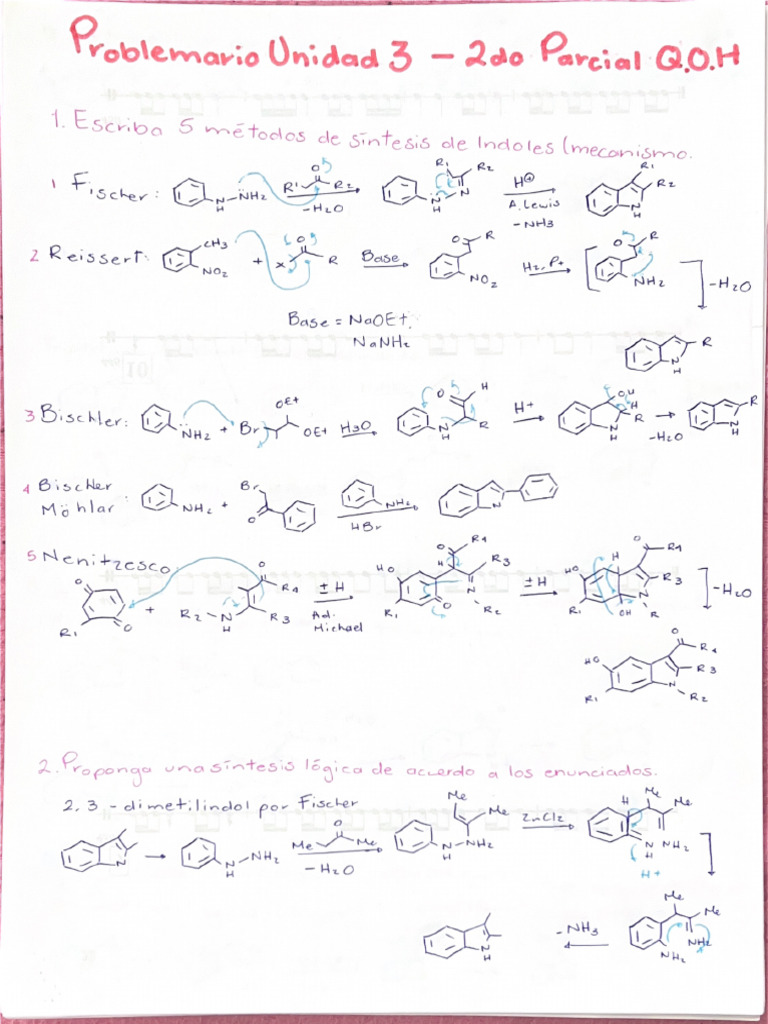 Problemario Unidad 3 - 2do Parcial Q.O.H
1. Escriba 5 métodos de síntesis de Indoles (mecanismo.
1 Fischer: N H NH2 R1 O R2 -H2O R1 R2 N H N H⊕ A. Lewis -NH3 R1 R2 N H
2 Reissert: CH3 NO2 + X O R Base O R NO2 H2, Pt O R NH2 -H2O
Base = NaOEt.
NaNH2
R N H
3 Bischler: NH2 + Br OEt OEt H3O O H N H R H+ OH H R N H -H2O R N H
4 Bischler
Möhlar: NH2 + Br O NH2 HBr N
5 Nenitzesco: O O R1 + R2-N H O R4 R3 ±H Ad. Michael HO R1 O H O R4 R3 N R2 ±H HO R1 OH H O R4 R3 N R -H2O
HO R1 O R4 R3 N R2
2. Proponga una síntesis lógica de acuerdo a los enunciados.
2,3-dimetilindol por Fischer
N N H NH2 Me O Me -H2O Me Me N H NH2 ZnCl2 H Me Me N H NH2 H+
N H -NH3 Me Me NH2 NH2